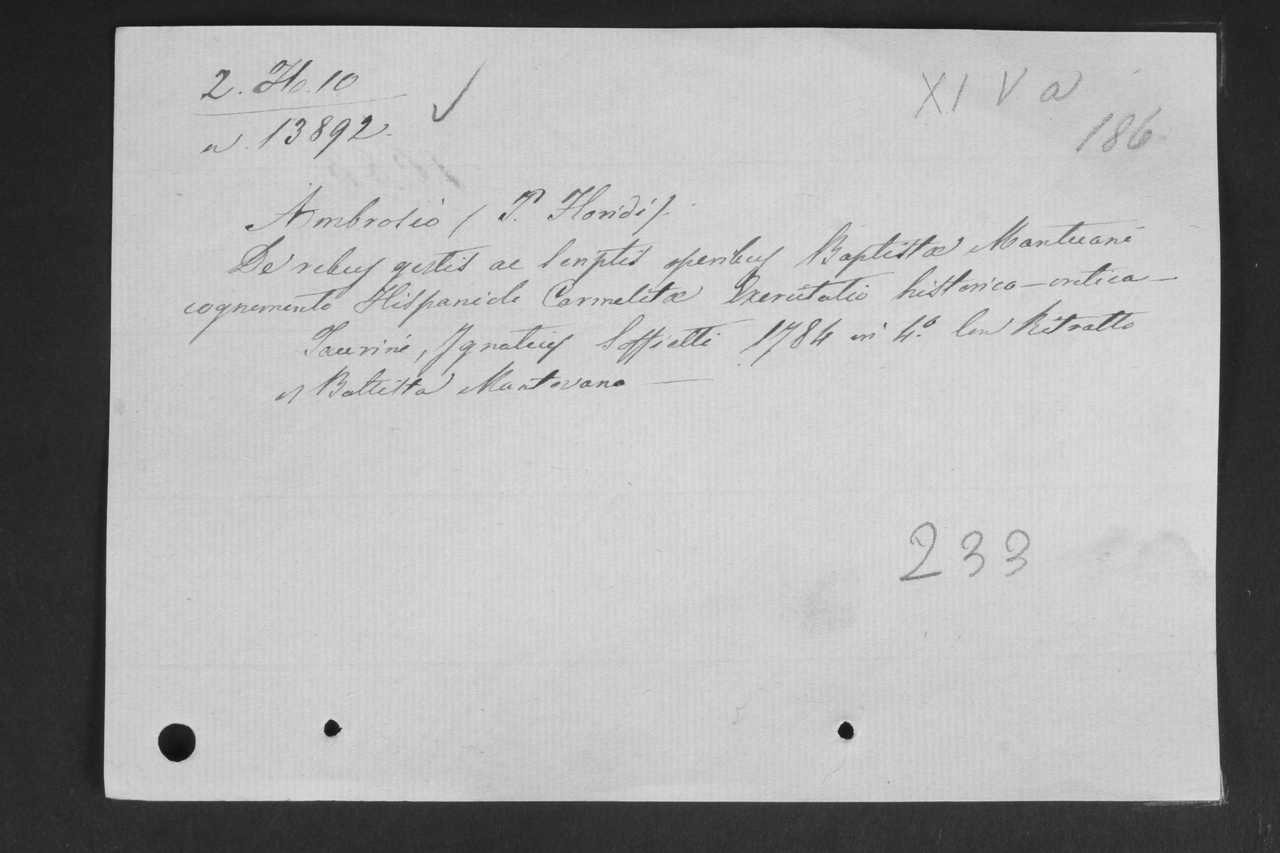 2. H. 10
n. 13892.
XI V a
186
Ambrosio (P. Floridi).
De rebus gestis ac scriptis operibus Baptistæ Mantuani
cognomento Hispanioli Carmelitæ Exercitatio historico-critica -
Taurini, Ignatius Soffietti 1784 in 4.º Con Ritratto
di Battista Mantovano —
233